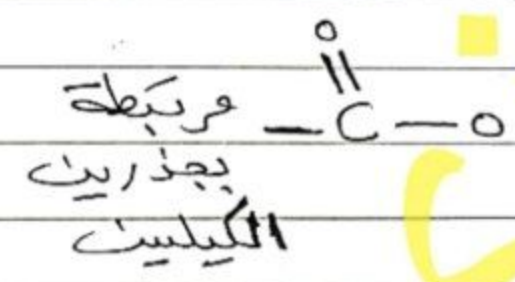 O
||
مرتبطة – C – O
بجذرين
الكيليين